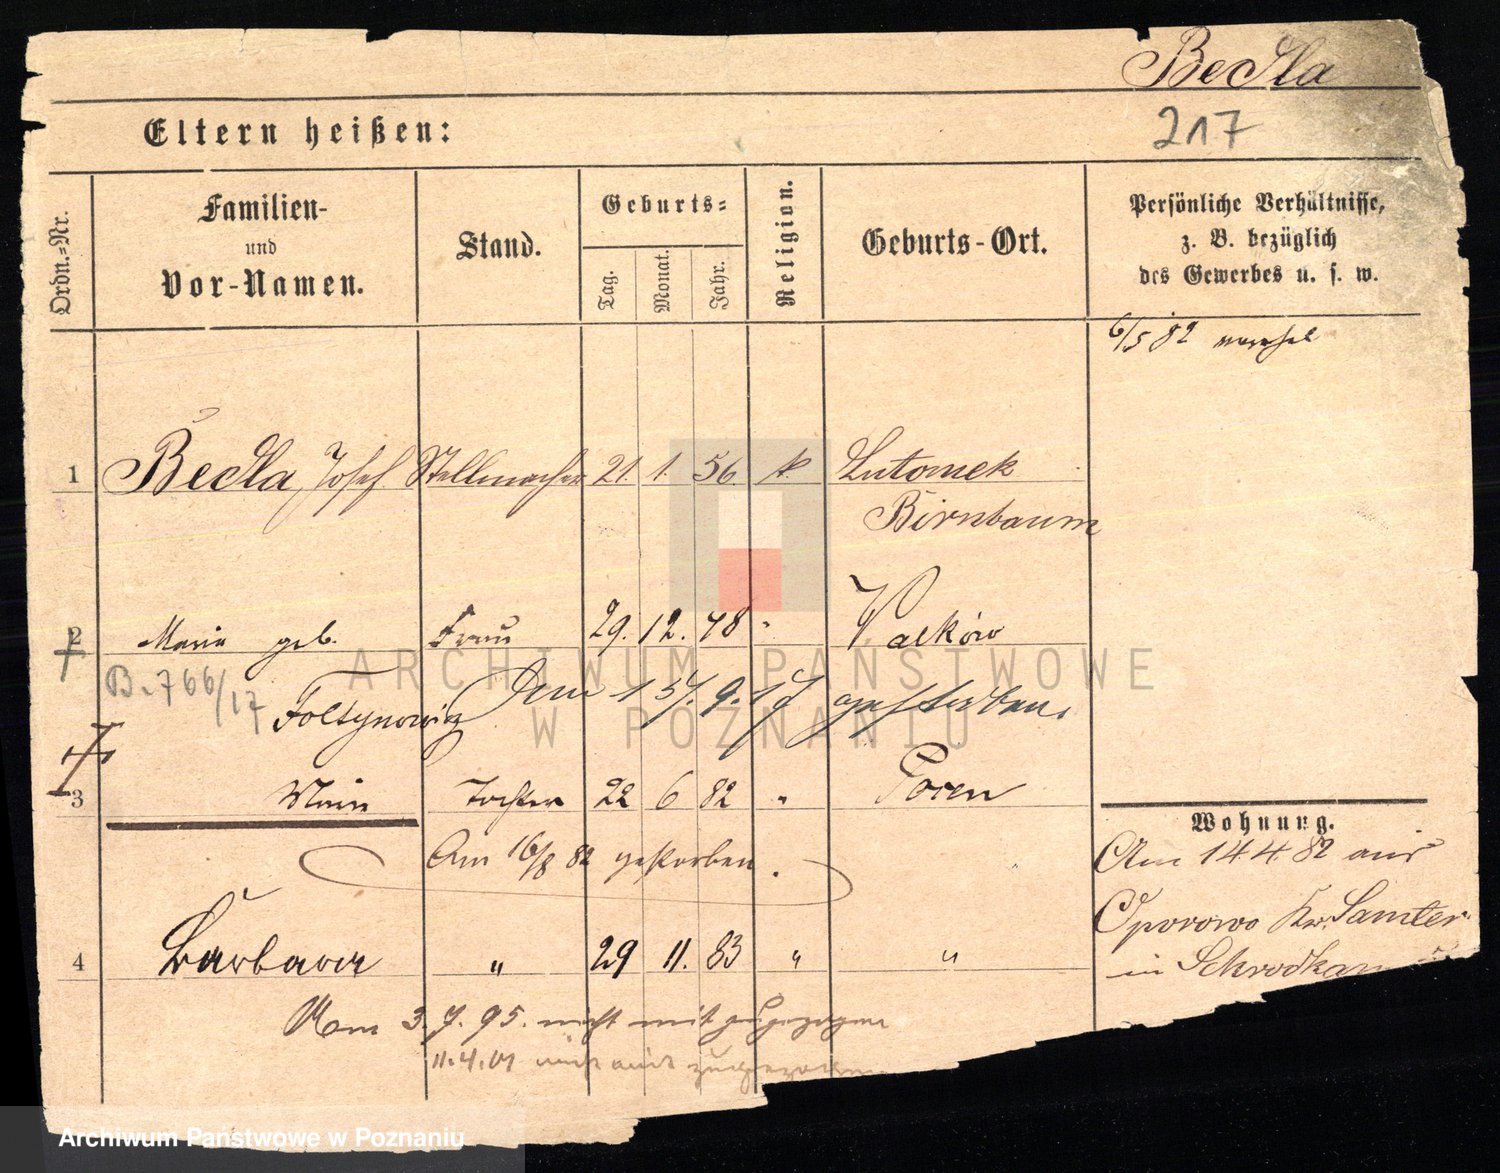 Becla
217
Eltern heißen:
Ordn.-Nr.
Familien- und Vor-Namen.
Stand.
Geburts-
Tag.
Monat.
Jahr.
Religion.
Geburts-Ort.
Persönliche Verhältnisse,
z. B. bezüglich
des Gewerbes u. s. w.
6/5 82
1 Becla Josef Stellmacher 21. 1. 56 k. Lutomek
Birnbaum
2 Maria geb. Frau 29. 12. 48 " Walków
B. 766/17
Foltynowicz Am 15. 9. 17 gestorben.
3 Tochter 22 6 82 " Posen
Am 16/8 82 gestorben.
Wohnung.
Am 14 4 82 aus
Oporowo Kr. Samter
in Schrodka
4 Barbara " 29 11. 83 " "
3. 7. 95. nicht mit zugezogen
11.4.01 nicht mit zugezogen
ARCHIWUM PAŃSTWOWE
W POZNANIU
Archiwum Państwowe w Poznaniu